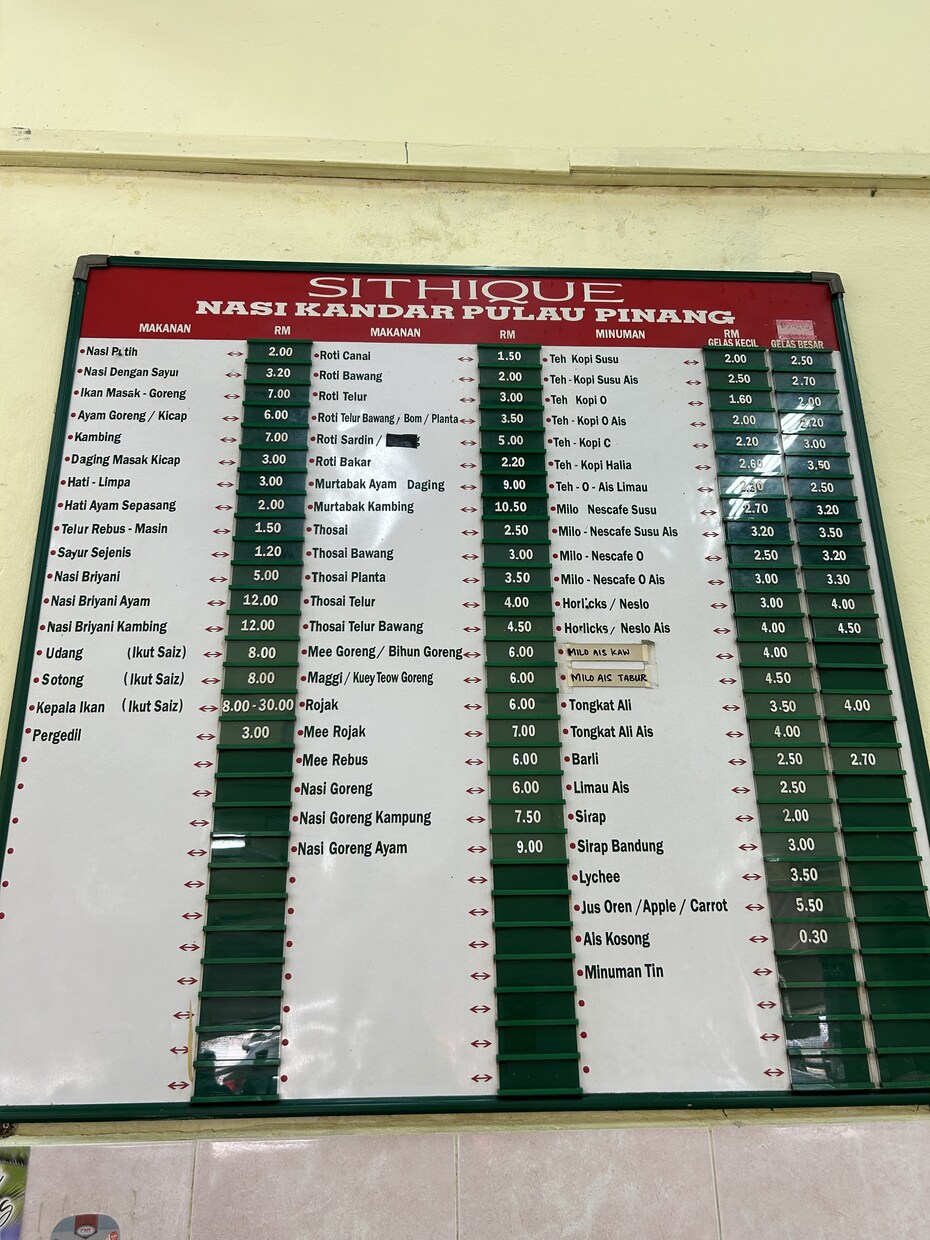 SITHIQUE
NASI KANDAR PULAU PINANG
MAKANAN RM
Nasi Putih 2.00
Nasi Dengan Sayur 3.20
Ikan Masak - Goreng 7.00
Ayam Goreng / Kicap 6.00
Kambing 7.00
Daging Masak Kicap 3.00
Hati - Limpa 3.00
Hati Ayam Sepasang 2.00
Telur Rebus - Masin 1.50
Sayur Sejenis 1.20
Nasi Briyani 5.00
Nasi Briyani Ayam 12.00
Nasi Briyani Kambing 12.00
Udang (Ikut Saiz) 8.00
Sotong (Ikut Saiz) 8.00
Kepala Ikan (Ikut Saiz) 8.00-30.00
Pergedil 3.00
MAKANAN RM
Roti Canai 1.50
Roti Bawang 2.00
Roti Telur 3.00
Roti Telur Bawang / Bom / Planta 3.50
Roti Sardin / 5.00
Roti Bakar 2.20
Murtabak Ayam Daging 9.00
Murtabak Kambing 10.50
Thosai 2.50
Thosai Bawang 3.00
Thosai Planta 3.50
Thosai Telur 4.00
Thosai Telur Bawang 4.50
Mee Goreng / Bihun Goreng 6.00
Maggi / Kuey Teow Goreng 6.00
Rojak 6.00
Mee Rojak 7.00
Mee Rebus 6.00
Nasi Goreng 6.00
Nasi Goreng Kampung 7.50
Nasi Goreng Ayam 9.00
MINUMAN RM
GELAS KECIL GELAS BESAR
Teh Kopi Susu 2.00 2.50
Teh - Kopi Susu Ais 2.50 2.70
Teh Kopi O 1.60 2.00
Teh - Kopi O Ais 2.00 2.20
Teh - Kopi C 2.20 3.00
Teh - Kopi Halia 2.60 3.50
Teh - O - Ais Limau 2.50
Milo Nescafe Susu 2.70 3.20
Milo - Nescafe Susu Ais 3.20 3.50
Milo - Nescafe O 2.50 3.20
Milo - Nescafe O Ais 3.00 3.30
Horlicks / Neslo 3.00 4.00
Horlicks / Neslo Ais 4.00 4.50
MILO AIS KAW 4.00
MILO AIS TABUR 4.50
Tongkat Ali 3.50 4.00
Tongkat Ali Ais 4.00
Barli 2.50 2.70
Limau Ais 2.50
Sirap 2.00
Sirap Bandung 3.00
Lychee 3.50
Jus Oren / Apple / Carrot 5.50
Ais Kosong 0.30
Minuman Tin